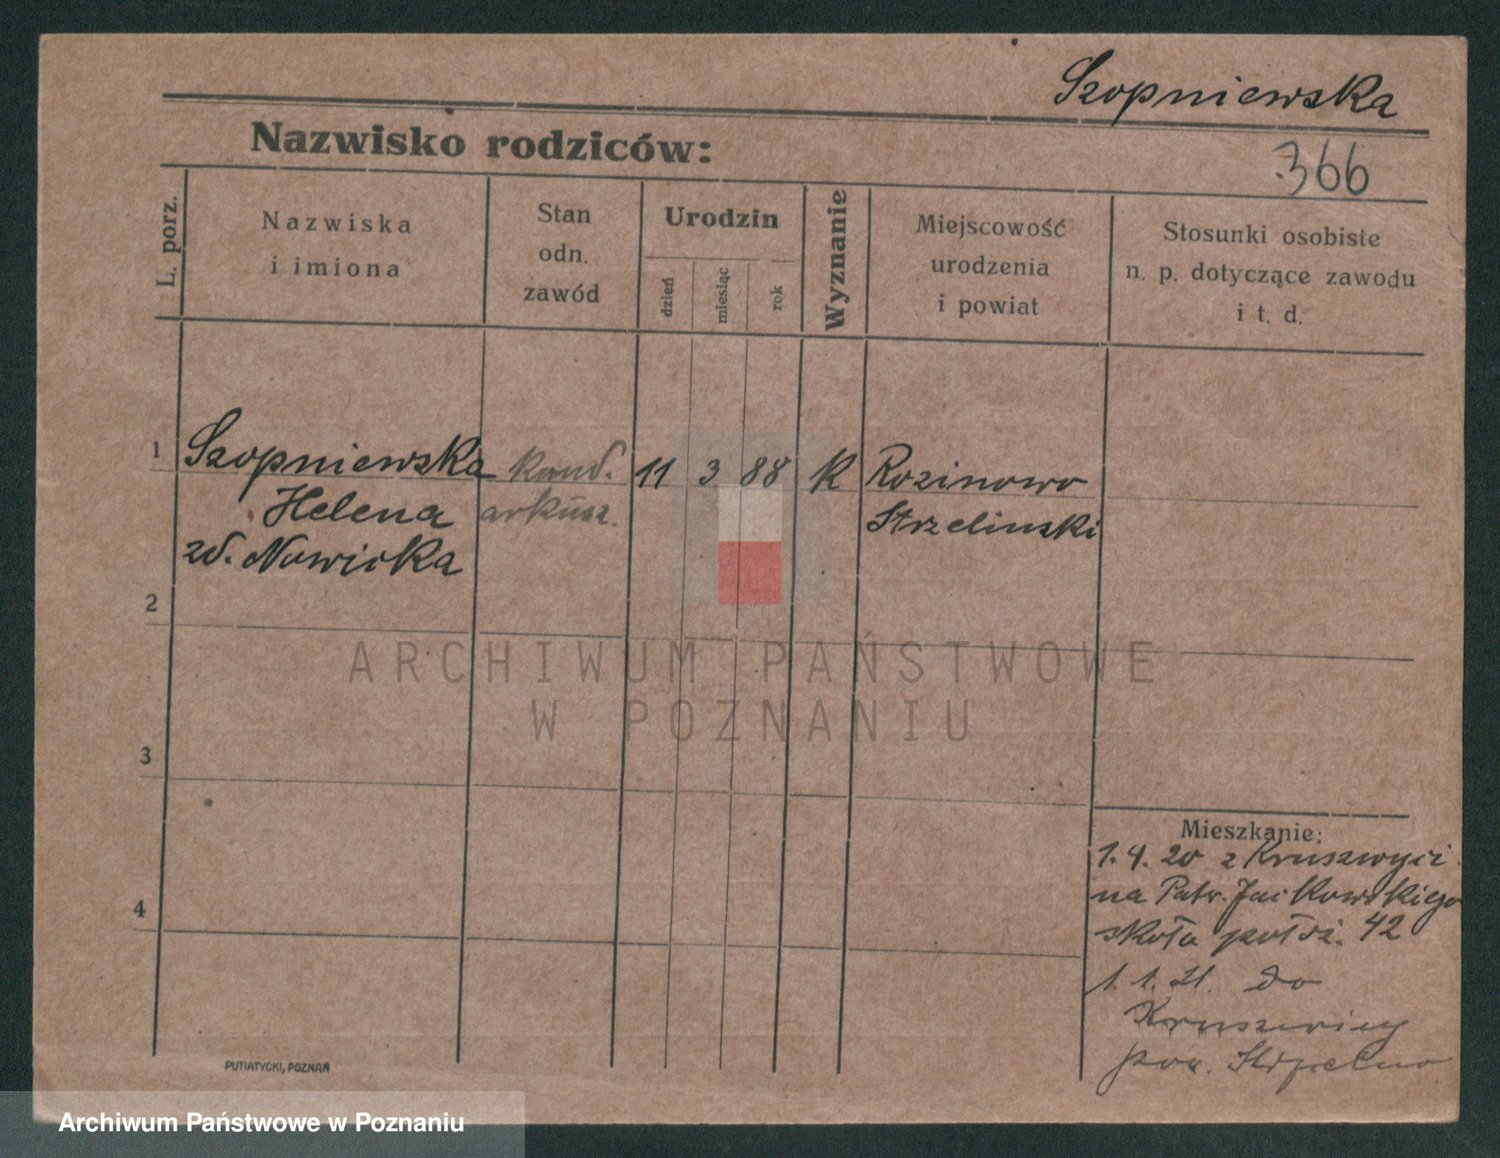 Szopniewska
Nazwisko rodziców:
366
L. porz.
Nazwiska
i imiona
Stan
odn.
zawód
Urodzin
dzień
miesiąc
rok
Wyznanie
Miejscowość
urodzenia
i powiat
Stosunki osobiste
n. p. dotyczące zawodu
i t. d.
1 Szopniewska kand. 11 3 88 k Rozinowo
Helena arkusz. Strzelinski
zd. Nowicka
2
ARCHIWUM PAŃSTWOWE
W POZNANIU
3
Mieszkanie:
1.4.20 z Kruszwyci
na Patr. Jackowskiego
skoła położ. 42
4
1.1.21. do
Kruszwicy
pow. Strzelno
PUTIATYCKI, POZNAŃ
Archiwum Państwowe w Poznaniu